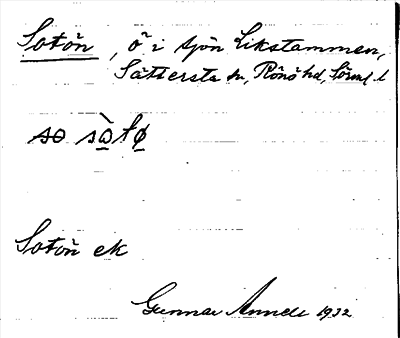 Sotön, ö i sjön Likstammen,
Sättersta sn, Rönö hd, Sörml. l
so sò̱tø̱
Sotön ek
Gunnar Annell 1932